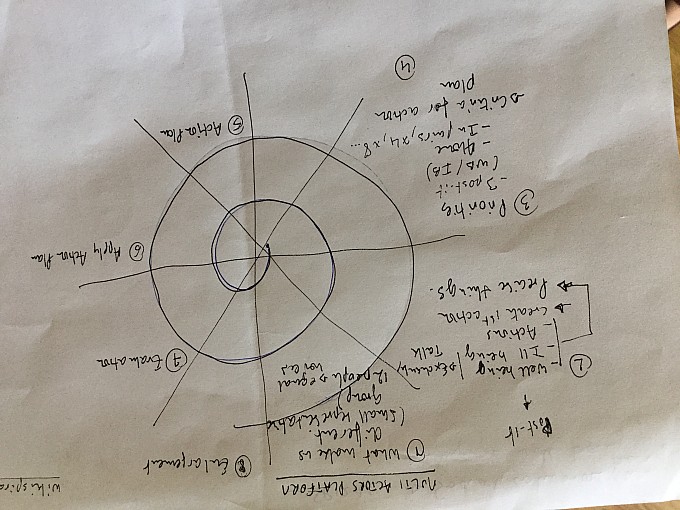 Wikispira
MULTI ACTORS PLATFORM
① What make us
different
(small representative
group)
12 people ≥ equal
voices
Post-it
②
- Well being
- Ill being
- Actions
Talk
Create 1st action
Precise things.
③ Priorities
- 3 post-it
(WB/IB)
- alone
- In pairs, x4, x8...
④
criteria for action
plan
⑤ Action Plan
⑥ Apply Action Plan
⑦ Evaluation
⑧ Enlargement